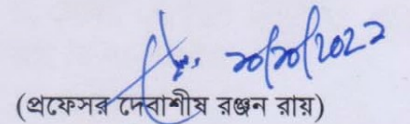 ২০/১০/২০২২
(প্রফেসর দেবাশীষ রঞ্জন রায়)